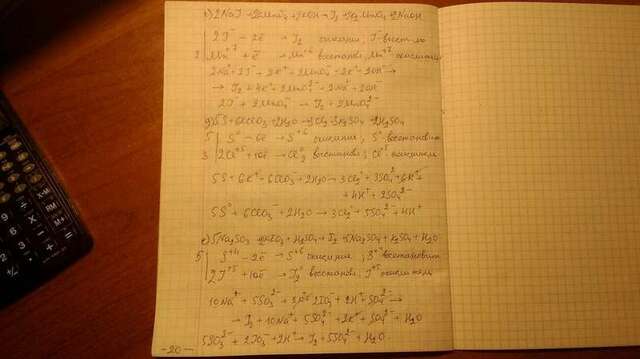 2J⁻ - 2ē → J₂ окисление, J⁻ восст-ль
2 | Mn⁺⁷ + ē → Mn⁺⁶ восстанов, Mn⁺⁷ окислитель
2Na⁺ + 2J⁻ + 2K⁺ + 2MnO₄⁻ + 2K⁺ + 2OH⁻ →
→ J₂ + 4K⁺ + 2MnO₄²⁻ + 2Na⁺ + 2OH⁻
2J⁻ + 2MnO₄⁻ → J₂ + 2MnO₄²⁻
д) 5S + 6KClO₃ + 2H₂O → 3Cl₂ + 3K₂SO₄ + 2H₂SO₄
5 | S⁰ - 6ē → S⁺⁶ окисление, S⁰ восстановит
3 | 2Cl⁺⁵ + 10ē → Cl₂⁰ восстанов, Cl⁺⁵ окислитель
5S + 6K⁺ + 6ClO₃⁻ + 2H₂O → 3Cl₂ + 3SO₄²⁻ + 6K⁺ +
+ 4H⁺ + 2SO₄²⁻
5S⁰ + 6ClO₃⁻ + 2H₂O → 3Cl₂⁰ + 5SO₄²⁻ + 4H⁺
е) 5Na₂SO₃ + 2KJO₃ + H₂SO₄ → J₂ + 5Na₂SO₄ + K₂SO₄ + H₂O
5 | S⁺⁴ - 2ē → S⁺⁶ окисление, S⁺⁴ восстановит
2J⁺⁵ + 10ē → J₂⁰ восстанов, J⁺⁵ окислитель
10Na⁺ + 5SO₃²⁻ + 2K⁺ + 2JO₃⁻ + 2H⁺ + SO₄²⁻ →
→ J₂ + 10Na⁺ + 5SO₄²⁻ + 2K⁺ + SO₄²⁻ + H₂O
5SO₃²⁻ + 2JO₃⁻ + 2H⁺ → J₂ + 5SO₄²⁻ + H₂O
-20-